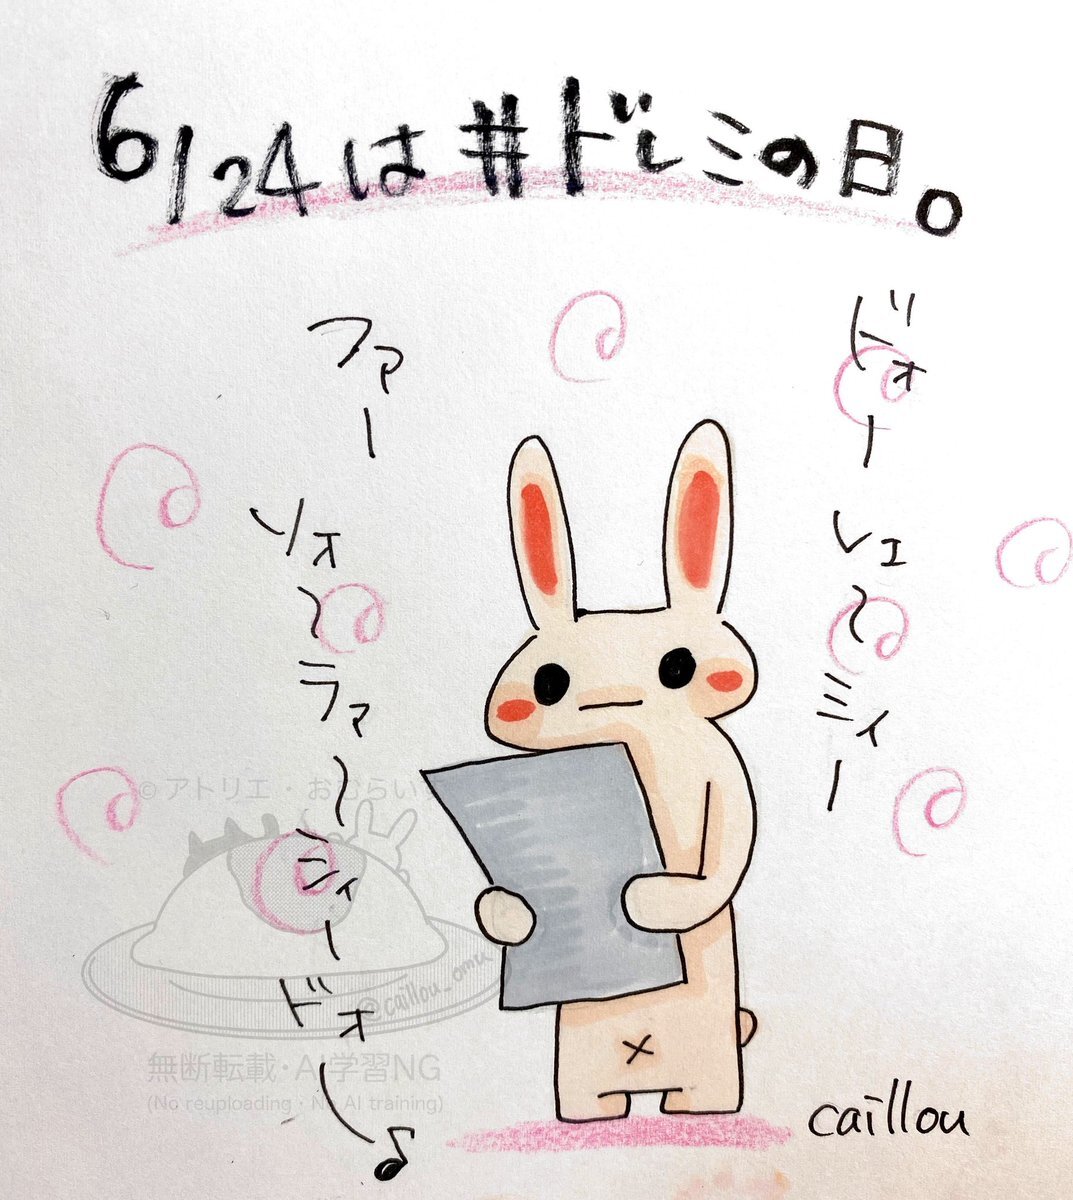 6/24は#ドレミの日。
ドォー
レェ〜
ミィー
ファー
ソォ〜
ラァ〜
シィー
ドォー♪
©アトリエ・おむらい
@caillou_omu
無断転載・AI学習NG
(No reuploading・No AI training)
caillou